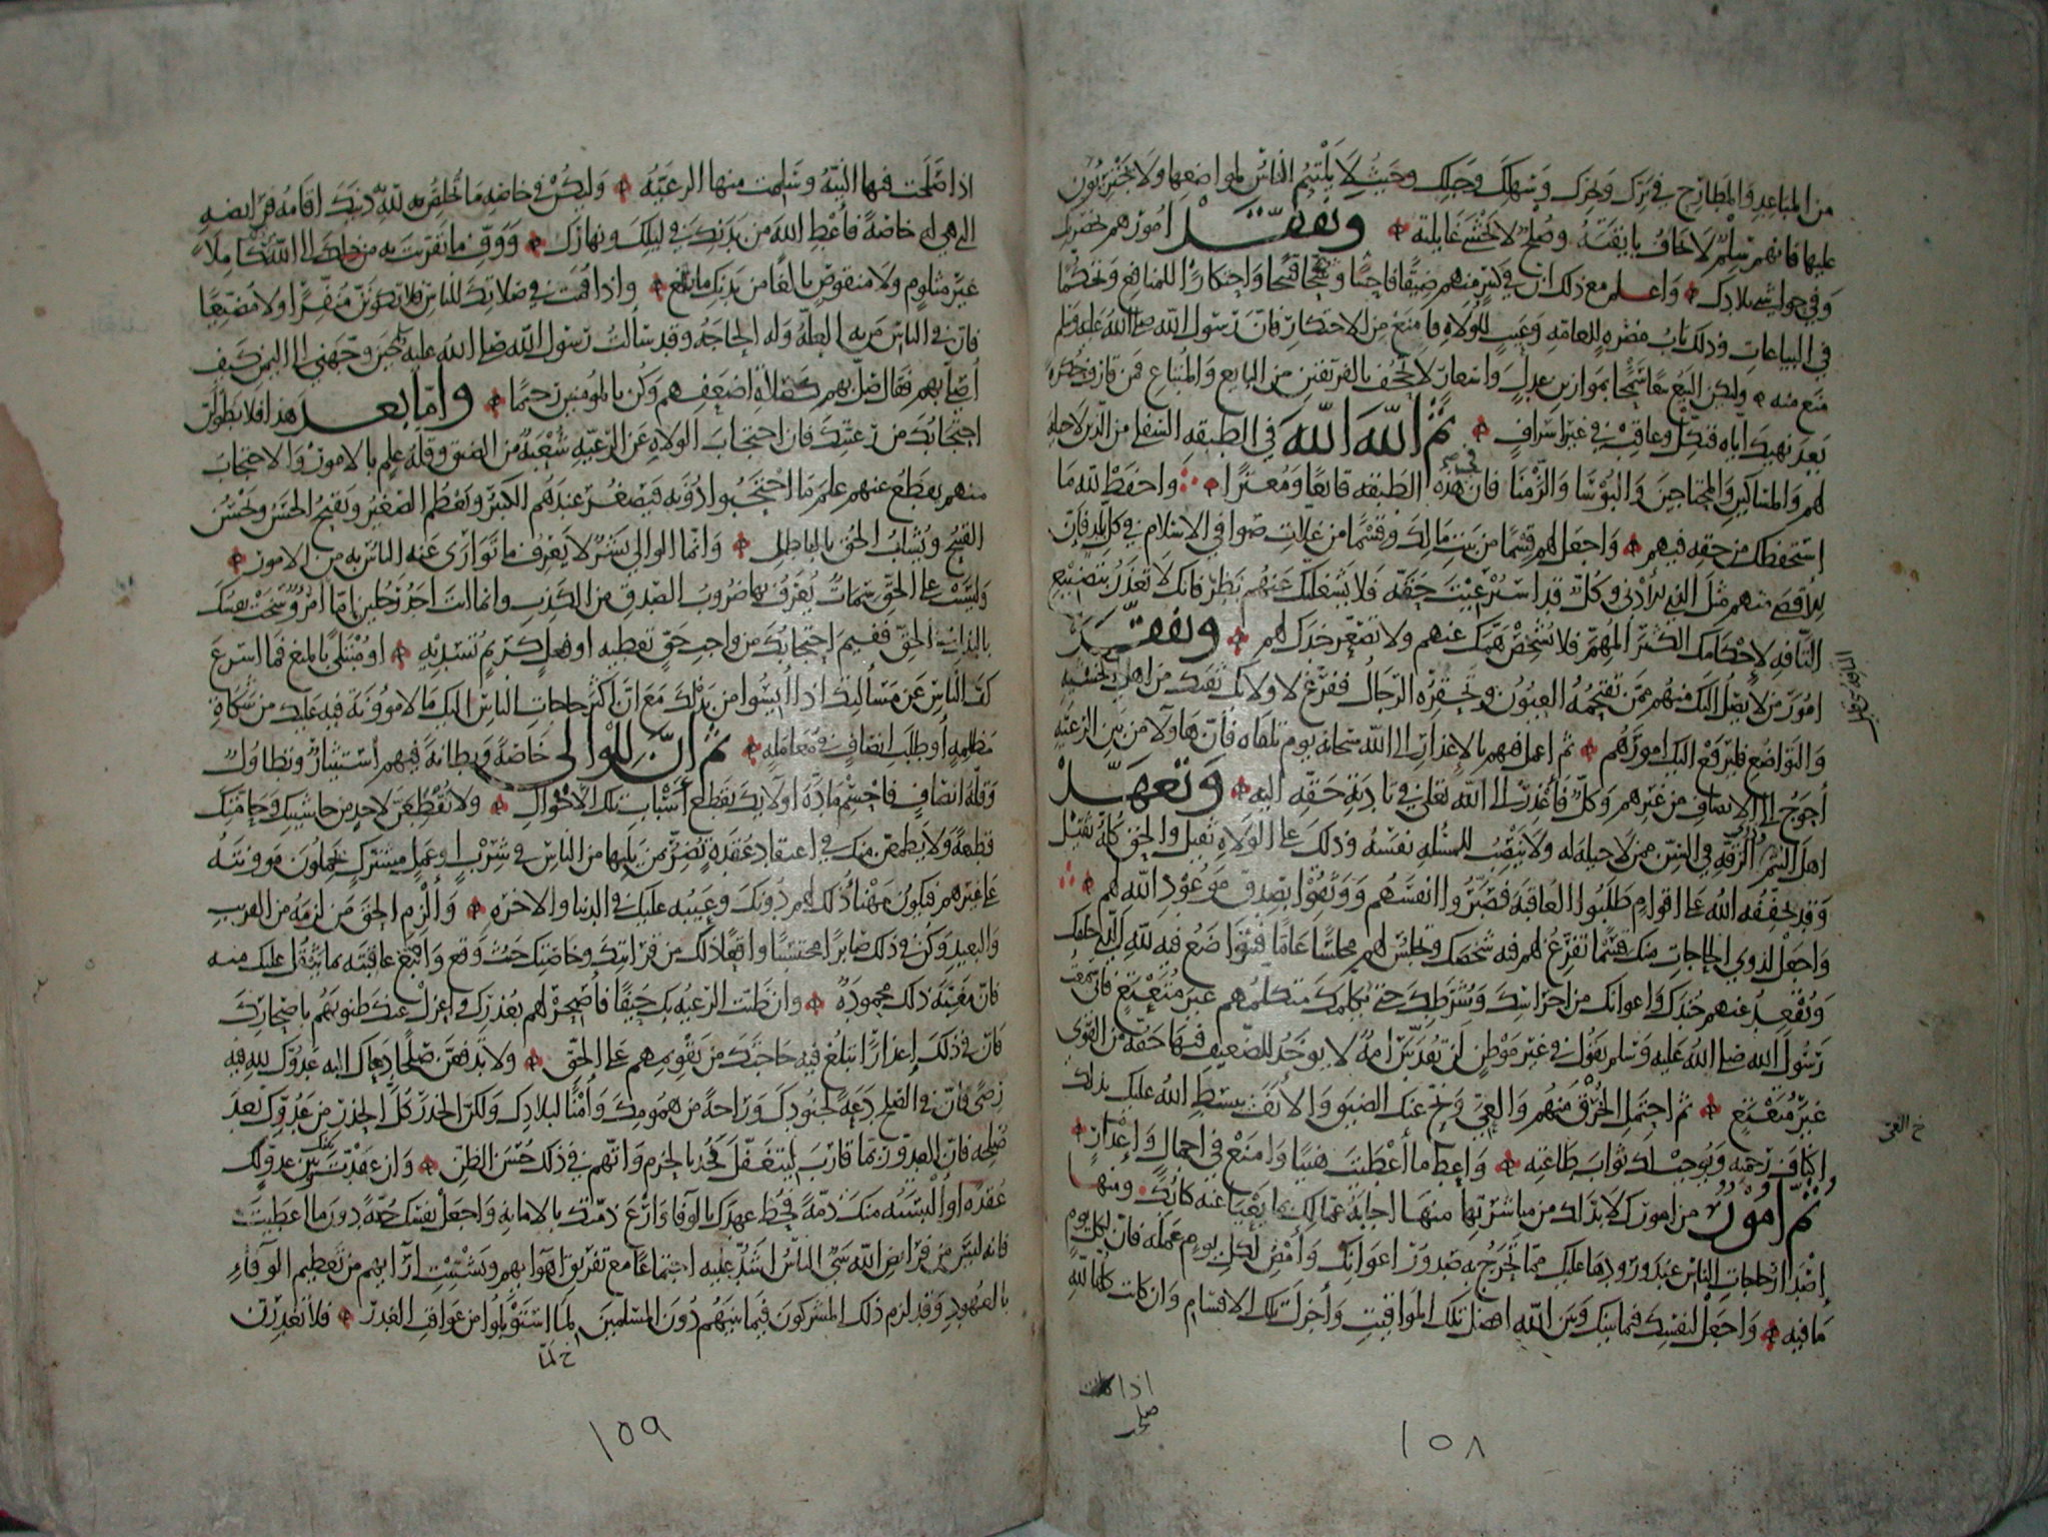 من المباعد والمطارح في برك وبحرك وسهلك وجبلك وحيث لا يلتئم الناس لمواضعها ولا يجترئون
عليها فانهم سلم لا تخاف بايقته وصلح لا تخشى غايلته وتفقد امورهم بحضرتك
وفي حواشي بلادك واعلم مع ذلك ان في كثير منهم ضيقا فاحشا وشحا قبيحا واحتكارا للمنافع وتحكما
في البياعات وذلك باب مضرة للعامة وعيب للولاة فامنع من الاحتكار فان رسول الله صلى الله عليه وسلم
منع منه وليكن البيع بيعا سمحا بموازين عدل واسعار لا تجحف بالفريقين من البايع والمبتاع فمن قارف حكرة
بعد نهيك اياه فنكل وعاقب في غير اسراف ثم الله الله في الطبقة السفلى من الذين لا حيلة
لهم والمساكين والمحتاجين والبؤسا والزمنا فان في هذه الطبقة قانعا ومعترا واحفظ لله ما
استحفظك من حقه فيهم واجعل لهم قسما من بيت مالك وقسما من غلات صوافي الاسلام في كل بلد فان
للاقصى منهم مثل الذي للادنى وكل قد استرعيت حقه فلا يشغلنك عنهم بطر فانك لا تعذر بتضييع
التافه لاحكامك الكثير المهم فلا تشخص همك عنهم ولا تصعر خدك لهم وتفقد
امور من لا يصل اليك منهم ممن تقتحمه العيون وتحقره الرجال ففرغ لاولائك ثقتك من اهل الخشية
والتواضع فليرفع اليك امورهم ثم اعمل فيهم بالاعذار الى الله سبحانه يوم تلقاه فان هاولا من بين الرعية
احوج الى الانصاف من غيرهم وكل فاعذر الى الله تعالى في تادية حقه اليه وتعهد
اهل اليتم وذوي الرقة في السن ممن لا حيلة له ولا ينصب للمسئلة نفسه وذلك على الولاة ثقيل والحق كله ثقيل
وقد يخففه الله على اقوام طلبوا العاقبة فصبروا انفسهم ووثقوا بصدق موعود الله لهم
واجعل لذوي الحاجات منك قسما تفرغ لهم فيه شخصك وتجلس لهم مجلسا عاما فتتواضع فيه لله الذي خلقك
وتقعد عنهم جندك واعوانك من احراسك وشرطك حتى يكلمك متكلمهم غير متعتع فاني سمعت
رسول الله صلى الله عليه وسلم يقول في غير موطن لن تقدس امة لا يوخذ للضعيف فيها حقه من القوي
غير متعتع ثم احتمل الخرق منهم والعي ونح عنك الضيق والانف يبسط الله عليك بذلك
اكناف رحمته ويوجب لك ثواب طاعته واعط ما اعطيت هنيا وامنع في اجمال واعذار
ثم امور من امورك لا بد لك من مباشرتها منها اجابة عمالك بما يعيا عنه كتابك ومنها
اصدار حاجات الناس عند ورودها عليك مما تحرج به صدور اعوانك وامض لكل يوم عمله فان لكل يوم
ما فيه واجعل لنفسك فيما بينك وبين الله افضل تلك المواقيت واجزل تلك الاقسام وان كانت كلها لله
خ العي
اذا
١٥٨
اذا صلحت فيها النية وسلمت منها الرعية وليكن في خاصة ما تخلص به لله دينك اقامة فرايضه
التي هي له خاصة فاعط الله من بدنك في ليلك ونهارك ووف ما تقربت به من ذلك الى الله كاملا
غير مثلوم ولا منقوص بالغا من بدنك ما بلغ واذا قمت في صلاتك للناس فلا تكونن منفرا ولا مضيعا
فان في الناس من به العلة وله الحاجة وقد سالت رسول الله صلى الله عليه حين وجهني الى اليمن كيف
اصلي بهم فقال صل بهم كصلاة اضعفهم وكن بالمومنين رحيما واما بعد هذا فلا تطولن
احتجابك من رعيتك فان احتجاب الولاة عن الرعية شعبة من الضيق وقلة علم بالامور والاحتجاب
منهم يقطع عنهم علم ما احتجبوا دونه فيصغر عندهم الكبير ويعظم الصغير ويقبح الحسن ويحسن
القبيح ويشاب الحق بالباطل وانما الوالي بشر لا يعرف ما توارى عنه الناس به من الامور
وليست على الحق سمات يعرف بها ضروب الصدق من الكذب وانما انت احد رجلين اما امرؤ سخت نفسك
بالبذل في الحق ففيم احتجابك من واجب حق تعطيه او فعل كريم تسديه او مبتلى بالمنع فما اسرع
كف الناس عن مسالتك اذا ايسوا من بذلك مع ان اكثر حاجات الناس اليك ما لا موونة فيه عليك من شكاة
مظلمة او طلب انصاف في معاملة ثم ان للوالي خاصة وبطانة فيهم استيثار وتطاول
وقلة انصاف فاحسم مادة اولايك بقطع اسباب تلك الاحوال ولا تقطعن لاحد من حاشيتك وحامتك
قطيعة ولا يطمعن منك في اعتقاد عقدة تضر بمن يليها من الناس في شرب او عمل مشترك يحملون موونته
على غيرهم فيكون مهنا ذلك لهم دونك وعيبه عليك في الدنيا والاخرة والزم الحق من لزمه من القريب
والبعيد وكن في ذلك صابرا محتسبا واقعا ذلك من قرابتك وخاصتك حيث وقع وابتغ عاقبته بما يثقل عليك منه
فان مغبة ذلك محمودة وان ظنت الرعية بك حيفا فاصحر لهم بعذرك واعزل عنك ظنونهم باصحارك
فان في ذلك اعذارا تبلغ فيه حاجتك من تقويمهم على الحق ولا تدفعن صلحا دعاك اليه عدوك لله فيه
رضى فان في الصلح دعة لجنودك وراحة من همومك وامنا لبلادك ولكن الحذر كل الحذر من عدوك بعد
صلحه فان العدو ربما قارب ليتغفل فخذ بالحزم واتهم في ذلك حسن الظن وان عقدت بينك وبين عدو لك
عقدة او البسته منك ذمة فحط عهدك بالوفا وارع ذمتك بالامانة واجعل نفسك جنة دون ما اعطيت
فانه ليس من فرايض الله شي الناس اشد عليه اجتماعا مع تفريق اهوايهم وتشتيت ارايهم من تعظيم الوفاء
بالعهود وقد لزم ذلك المشركون فيما بينهم دون المسلمين لما استوبلوا من عواقب الغدر فلا تغدرن
خ لما
١٥٩